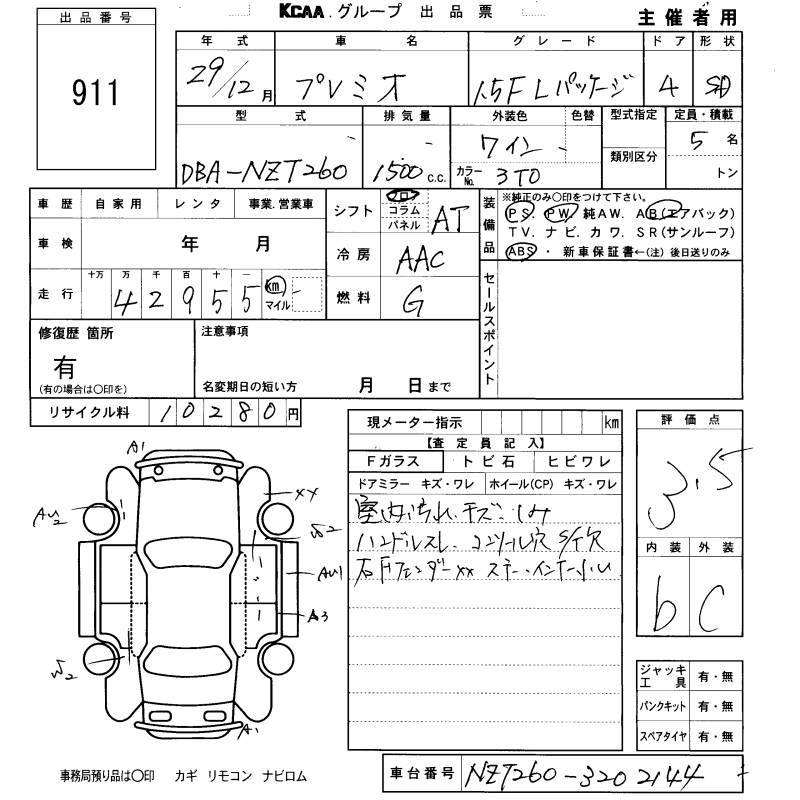 KCAA.グループ 出品票
主催者用
出品番号
911
年式 車名 グレード ドア 形状
29/12月 プレミオ 1.5F Lパッケージ 4 SD
型式 排気量 外装色 色替 型式指定 定員・積載
DBA-NZT260 1500 c.c. ワイン カラーNo. 3T0 類別区分 5名
トン
車歴 自家用 レンタ 事業.営業車
シフト フロア コラム パネル AT
装備品
※純正のみ〇印をつけて下さい。
PS PW 純AW. AB(エアバック)
TV. ナビ. カワ. SR(サンルーフ)
ABS・新車保証書←(注)後日送りのみ
車検 年 月
冷房 AAC
走行 十万 万 千 百 十 一
4 2 9 5 5 km マイル
燃料 G
セールスポイント
修復歴 箇所
有
(有の場合は〇印を)
注意事項
名変期日の短い方 月 日まで
リサイクル料 10280円
現メーター指示 km
【査定員記入】
Fガラス トビ石 ヒビワレ
ドアミラー キズ・ワレ ホイール(CP) キズ・ワレ
室内汚れ.キズ.シミ
ハンドルスレ. コンソール穴 S/T穴
右Fフェンダーxx ステー.インナー小U
評価点
3.5
内装 外装
b C
A1
AU2
XX
W2
AU1
A3
W2
A1
ジャッキ工具 有・無
パンクキット 有・無
スペアタイヤ 有・無
事務局預り品は〇印 カギ リモコン ナビロム
車台番号 NZT260-3202144